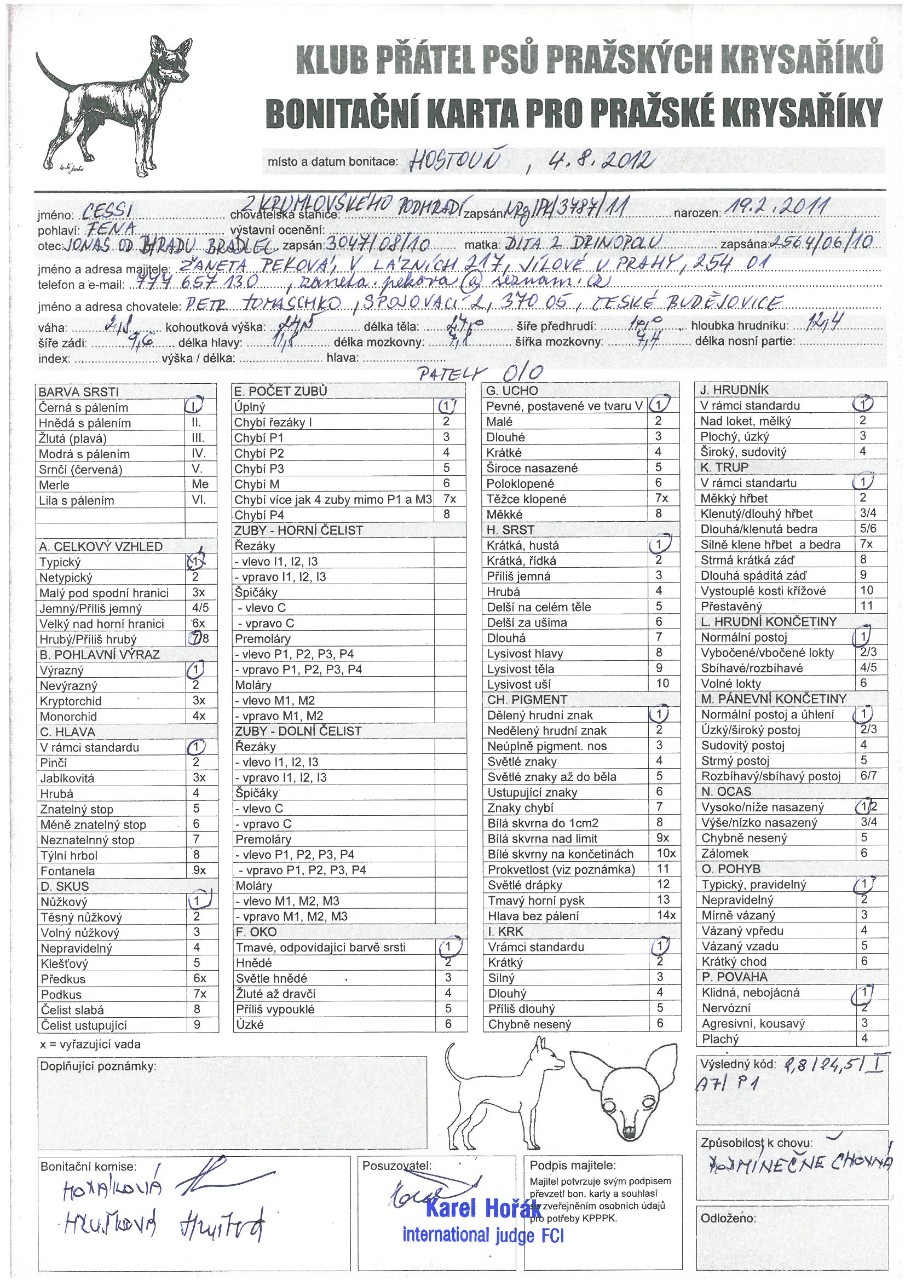 KLUB PŘÁTEL PSŮ PRAŽSKÝCH KRYSAŘÍKŮ
BONITAČNÍ KARTA PRO PRAŽSKÉ KRYSAŘÍKY
místo a datum bonitace: HOSTOUŇ, 4.8.2012
jméno: CESSI chovatelská stanice: Z KRUMLOVSKÉHO PODHRADÍ zapsán: /3787/11 narozen: 19.2.2011
pohlaví: FENA výstavní ocenění:
otec: JONAS OD HRADU BRADLEC zapsán: 3047/08/10 matka: DITA Z DŘINOPOLU zapsána: 2564/06/10
jméno a adresa majitele: ŽANETA PEKOVÁ, V LÁZNÍCH 217, JÍLOVÉ U PRAHY, 254 01
telefon a e-mail: 777 657 130, zaneta.pekova@seznam.cz
jméno a adresa chovatele: PETR TOMASCHKO, SPOJOVACÍ 2, 370 05, ČESKÉ BUDĚJOVICE
váha: 2,8 kohoutková výška: 24,5 délka těla: 27,0 šíře předhrudí: 10,0 hloubka hrudníku: 12,4
šíře zádi: 9,6 délka hlavy: 11,8 délka mozkovny: 7,1 šířka mozkovny: 7,4 délka nosní partie:
index: výška / délka: hlava:
PATELY 0/0
BARVA SRSTI
Černá s pálením I.
Hnědá s pálením II.
Žlutá (plavá) III.
Modrá s pálením IV.
Srnčí (červená) V.
Merle Me
Lila s pálením VI.
A. CELKOVÝ VZHLED
Typický 1
Netypický 2
Malý pod spodní hranici 3x
Jemný/Příliš jemný 4/5
Velký nad horní hranici 6x
Hrubý/Příliš hrubý 7/8
B. POHLAVNÍ VÝRAZ
Výrazný 1
Nevýrazný 2
Kryptorchid 3x
Monorchid 4x
C. HLAVA
V rámci standardu 1
Pinčí 2
Jablkovitá 3x
Hrubá 4
Znatelný stop 5
Méně znatelný stop 6
Neznatelnný stop 7
Týlní hrbol 8
Fontanela 9x
D. SKUS
Nůžkový 1
Těsný nůžkový 2
Volný nůžkový 3
Nepravidelný 4
Klešťový 5
Předkus 6x
Podkus 7x
Čelist slabá 8
Čelist ustupující 9
x = vyřazující vada
E. POČET ZUBŮ
Úplný 1
Chybí řezáky I 2
Chybí P1 3
Chybí P2 4
Chybí P3 5
Chybí M 6
Chybí více jak 4 zuby mimo P1 a M3 7x
Chybí P4 8
ZUBY - HORNÍ ČELIST
Řezáky
- vlevo I1, I2, I3
- vpravo I1, I2, I3
Špičáky
- vlevo C
- vpravo C
Premoláry
- vlevo P1, P2, P3, P4
- vpravo P1, P2, P3, P4
Moláry
- vlevo M1, M2
- vpravo M1, M2
ZUBY - DOLNÍ ČELIST
Řezáky
- vlevo I1, I2, I3
- vpravo I1, I2, I3
Špičáky
- vlevo C
- vpravo C
Premoláry
- vlevo P1, P2, P3, P4
- vpravo P1, P2, P3, P4
Moláry
- vlevo M1, M2, M3
- vpravo M1, M2, M3
F. OKO
Tmavé, odpovídající barvě srsti 1
Hnědé 2
Světle hnědé 3
Žluté až dravčí 4
Příliš vypouklé 5
Úzké 6
G. UCHO
Pevné, postavené ve tvaru V 1
Malé 2
Dlouhé 3
Krátké 4
Široce nasazené 5
Poloklopené 6
Těžce klopené 7x
Měkké 8
H. SRST
Krátká, hustá 1
Krátká, řídká 2
Příliš jemná 3
Hrubá 4
Delší na celém těle 5
Delší za ušima 6
Dlouhá 7
Lysivost hlavy 8
Lysivost těla 9
Lysivost uší 10
CH. PIGMENT
Dělený hrudní znak 1
Nedělený hrudní znak 2
Neúplně pigment. nos 3
Světlé znaky 4
Světlé znaky až do běla 5
Ustupující znaky 6
Znaky chybí 7
Bílá skvrna do 1cm2 8
Bílá skvrna nad limit 9x
Bílé skvrny na končetinách 10x
Prokvetlost (viz poznámka) 11
Světlé drápky 12
Tmavý horní pysk 13
Hlava bez pálení 14x
I. KRK
Vrámci standardu 1
Krátký 2
Silný 3
Dlouhý 4
Příliš dlouhý 5
Chybně nesený 6
J. HRUDNÍK
V rámci standardu 1
Nad loket, mělký 2
Plochý, úzký 3
Široký, sudovitý 4
K. TRUP
V rámci standartu 1
Měkký hřbet 2
Klenutý/dlouhý hřbet 3/4
Dlouhá/klenutá bedra 5/6
Silně klene hřbet a bedra 7x
Strmá krátká záď 8
Dlouhá spáditá záď 9
Vystouplé kosti křížové 10
Přestavěný 11
L. HRUDNÍ KONČETINY
Normální postoj 1
Vybočené/vbočené lokty 2/3
Sbíhavé/rozbíhavé 4/5
Volné lokty 6
M. PÁNEVNÍ KONČETINY
Normální postoj a úhlení 1
Úzký/široký postoj 2/3
Sudovitý postoj 4
Strmý postoj 5
Rozbíhavý/sbíhavý postoj 6/7
N. OCAS
Vysoko/níže nasazený 1/2
Výše/nízko nasazený 3/4
Chybně nesený 5
Zálomek 6
O. POHYB
Typický, pravidelný 1
Nepravidelný 2
Mírně vázaný 3
Vázaný vpředu 4
Vázaný vzadu 5
Krátký chod 6
P. POVAHA
Klidná, nebojácná 1
Nervózní 2
Agresivní, kousavý 3
Plachý 4
Doplňující poznámky:
Výsledný kód: 2,8/24,5/I
A7/P1
Způsobilost k chovu:
PODMÍNEČNĚ CHOVNÁ
Odloženo:
Bonitační komise:
HORÁKOVÁ
HRUŠKOVÁ
Posuzovatel:
Karel Hořák
international judge FCI
Podpis majitele:
Majitel potvrzuje svým podpisem
převzetí bon. karty a souhlasí
se zveřejněním osobních údajů
pro potřeby KPPPK.